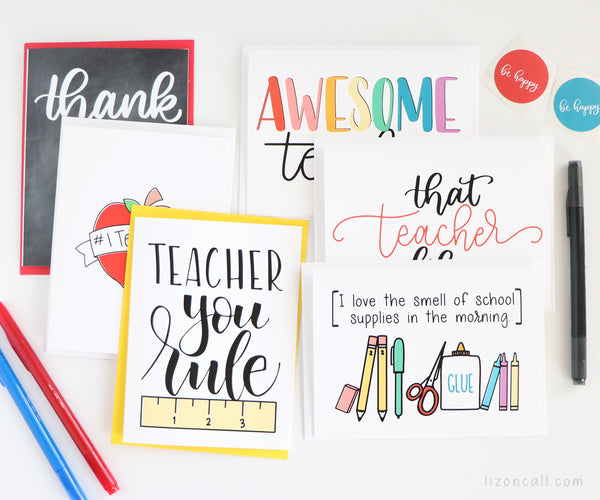 thank
AWESOME
be happy
be happy
#1
that
teacher
TEACHER
you
rule
1 2 3
[I love the smell of school
supplies in the morning.]
GLUE
lizoncall.com